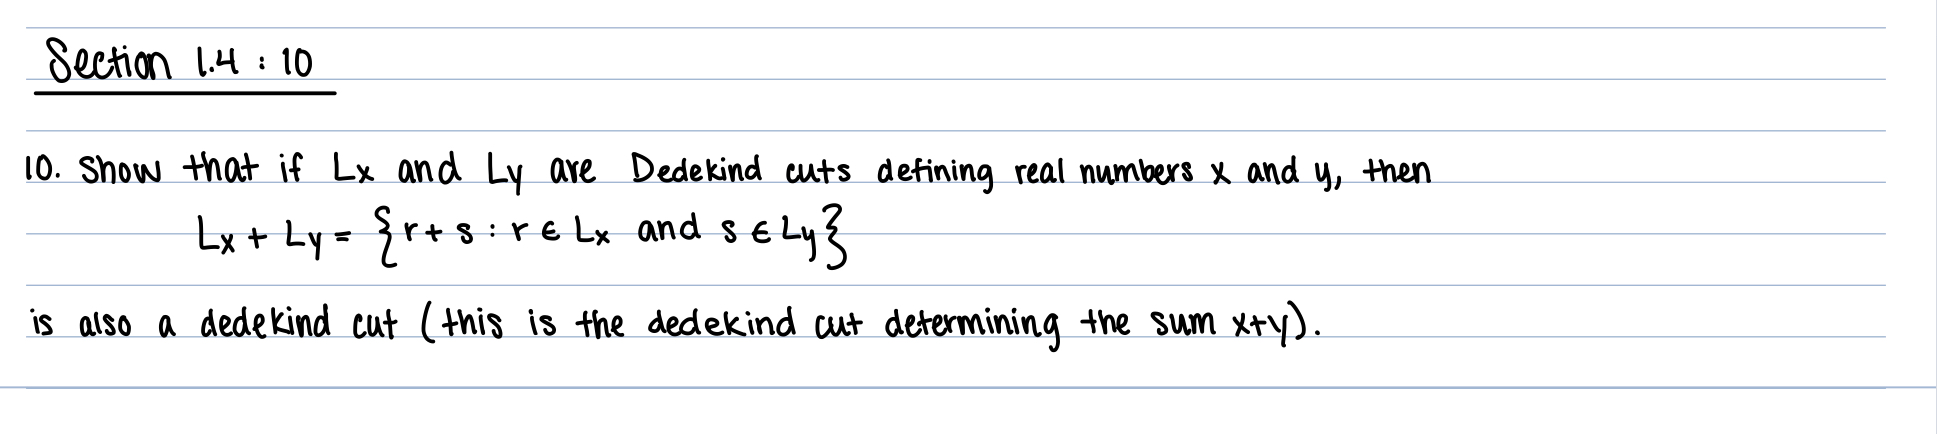 Section 1.4 : 10
10. Show that if Lx and Ly are Dedekind cuts defining real numbers x and y, then
Lx + Ly = {r + s : r ∈ Lx and s ∈ Ly}
is also a dedekind cut (this is the dedekind cut determining the sum x+y).